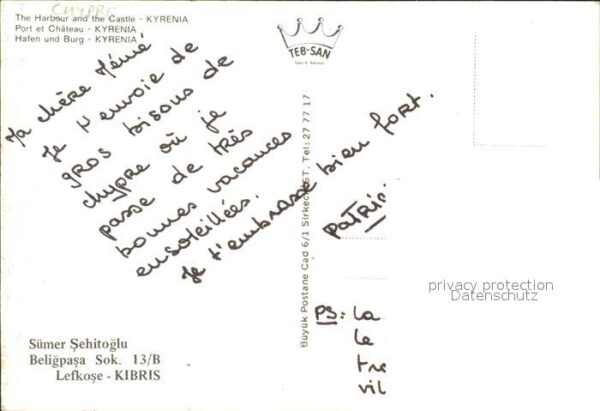 CHYPRE
The Harbour and the Castle - KYRENIA
Port et Château - KYRENIA
Hafen und Burg - KYRENIA
TEB-SAN
Ma chère Mémé
Je t'envoie de
gros bisous de
chypre où je
passe de très
bonnes vacances
ensoleillées.
Je t'embrasse bien fort.
Patric
PS: La
le
tre
vil
Büyük Postane Cad 6/1 Sirkeci-İST. Tel: 27 77 17
Sümer Şehitoğlu
Beliğpaşa Sok. 13/B
Lefkoşe - KIBRIS
privacy protection
Datenschutz